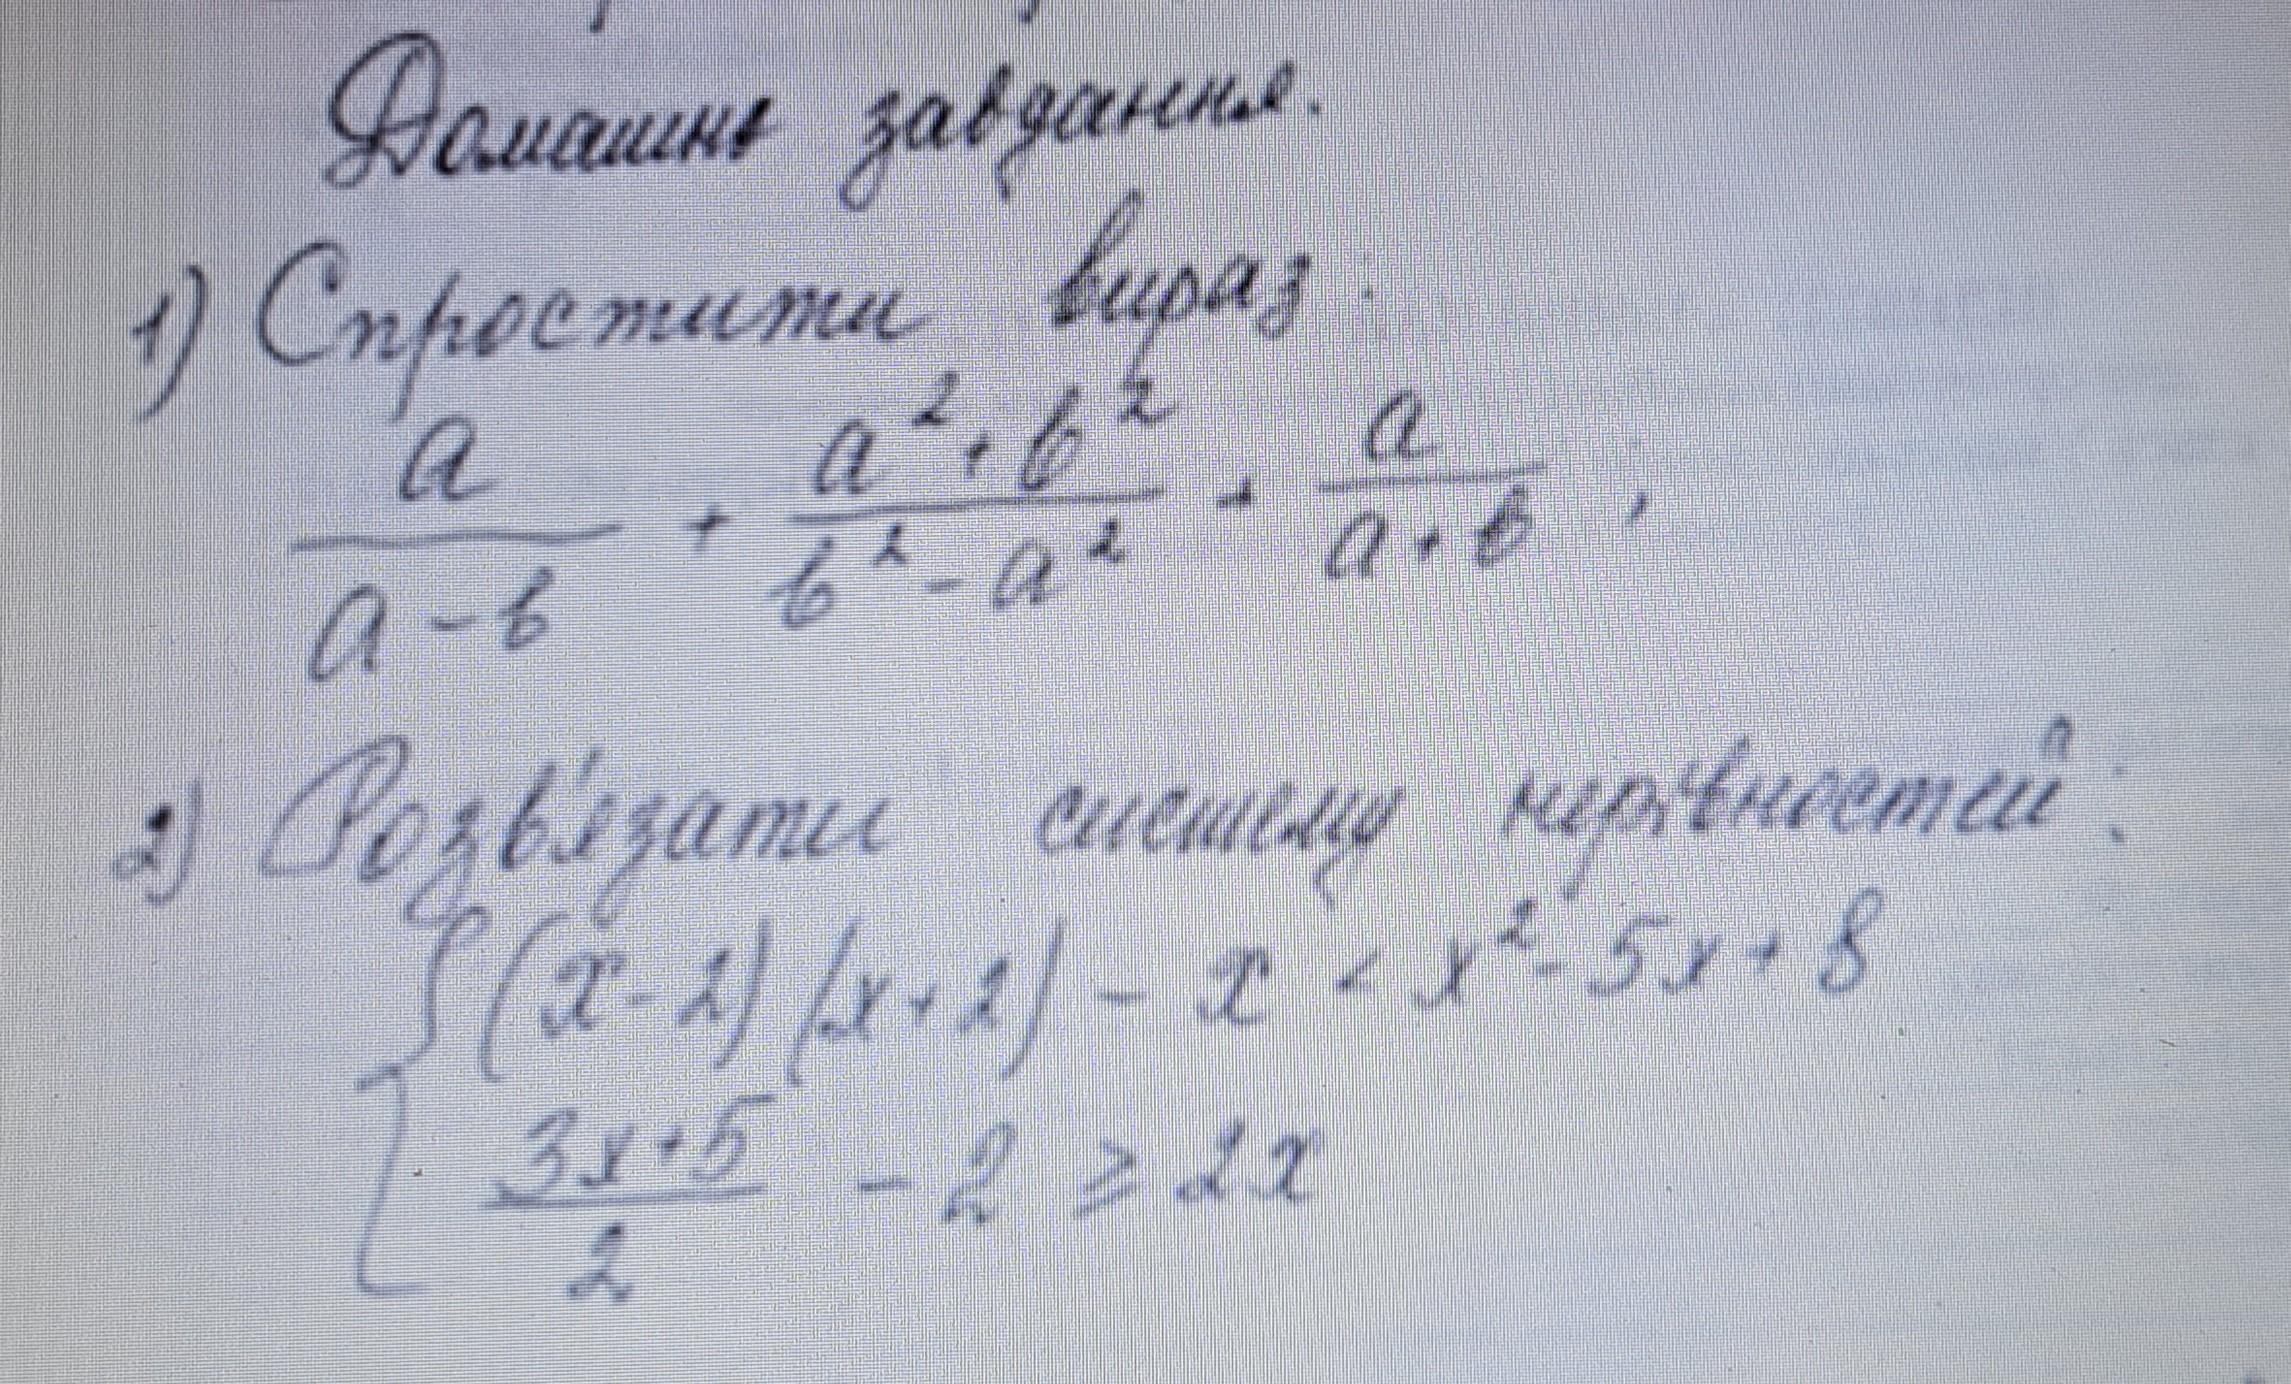 Домашнє завдання.
1) Спростити вираз:
a/(a-b) + (a²+b²)/(b²-a²) + a/(a+b),
2) Розв'язати систему нерівностей:
{ (x-2)(x+2) - x < x²-5x+8
(3x+5)/2 - 2 ≥ 2x